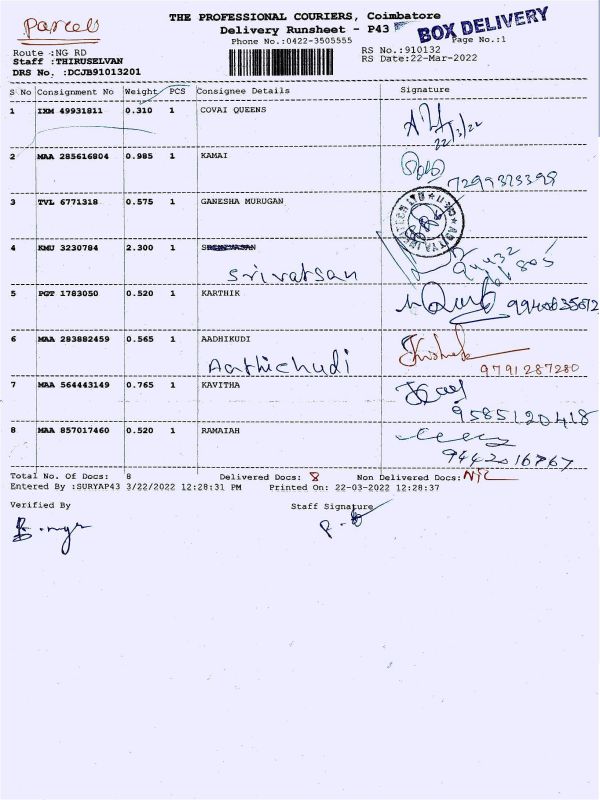 Parcels
THE PROFESSIONAL COURIERS, Coimbatore
Delivery Runsheet - P43
BOX DELIVERY
Phone No.:0422-3505555
Page No.:1
Route :NG RD
RS No.:910132
Staff :THIRUSELVAN
RS Date:22-Mar-2022
DRS No. :DCJB91013201
S No Consignment No Weight PCS Consignee Details Signature
1 IXM 49931811 0.310 1 COVAI QUEENS
22/3/22
2 MAA 285616804 0.985 1 KAMAI
7299373398
3 TVL 6771318 0.575 1 GANESHA MURUGAN
4 KMU 3230784 2.300 1
Srivatsan
5 PGT 1783050 0.520 1 KARTHIK
6 MAA 283882459 0.565 1 AADHIKUDI
Aathichudi
9791287280
7 MAA 564443149 0.765 1 KAVITHA
9585120418
8 MAA 857017460 0.520 1 RAMAIAH
9442016767
Total No. Of Docs: 8 Delivered Docs: 8 Non Delivered Docs: NIL
Entered By :SURYAP43 3/22/2022 12:28:31 PM Printed On: 22-03-2022 12:28:37
Verified By Staff Signature